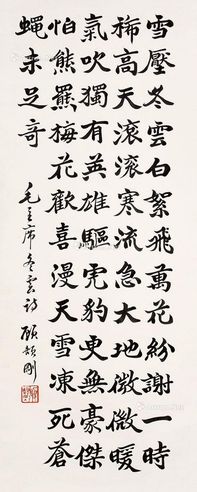 雪壓冬雲白絮飛萬花紛謝一時
稀高天滾滾寒流急大地微微暖
氣吹獨有英雄驅虎豹更無豪傑
怕熊羆梅花歡喜漫天雪凍死蒼
蠅未足奇
毛主席冬雲詩 顧頡剛